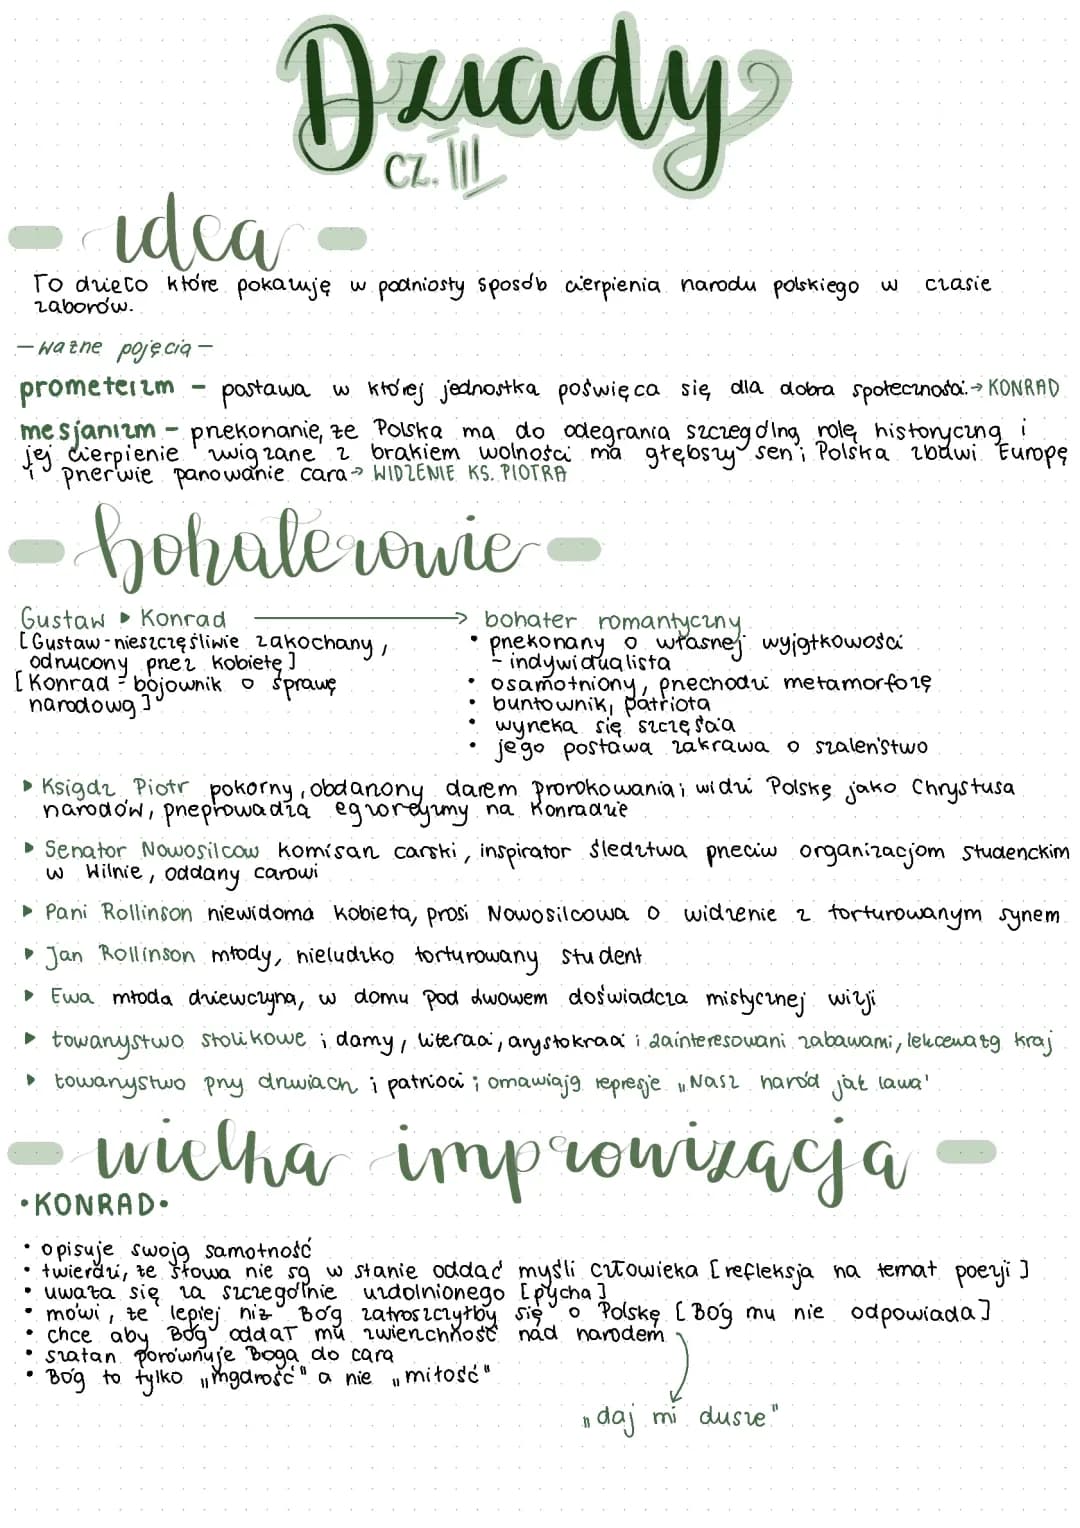 Dziady
cz. III
idea
To dzieło które pokazuję w podniosły sposób cierpienia narodu polskiego w czasie
zaborów.
- ważne pojęcia -
prometeizm - postawa w której jednostka poświęca się dla dobra społeczności.→ KONRAD
mesjanizm - przekonanie, że Polska ma do odegrania szczególną rolę historyczną i
jej cierpienie związane z brakiem wolności ma głębszy sen; Polska zbawi Europę
i przerwie panowanie cara→ WIDZENIE KS. PIOTRA
bohaterowie
Gustaw ▸ Konrad → bohater romantyczny
[Gustaw - nieszczęśliwie zakochany,
odrzucony przez kobietę]
[Konrad - bojownik o sprawę
narodową]
• przekonany o własnej wyjątkowości
- indywidualista
• osamotniony, przechodzi metamorfozę
• buntownik, patriota
• wyrzeka się szczęścia
• jego postawa zakrawa o szaleństwo
▸ Ksiądz Piotr pokorny, obdarzony darem prorokowania; widzi Polskę jako Chrystusa
narodów, przeprowadza egzorcyzmy na Konradzie
▸ Senator Nowosilcow komisarz carski, inspirator śledztwa przeciw organizacjom studenckim
w Wilnie, oddany carowi
▸ Pani Rollinson niewidoma kobieta, prosi Nowosilcowa o widzenie z torturowanym synem
▸ Jan Rollinson młody, nieludzko torturowany student
▸ Ewa młoda dziewczyna, w domu pod Lwowem doświadcza mistycznej wizji
▸ towarzystwo stolikowe ; damy, literaci, arystokraci ; zainteresowani zabawami, lekceważą kraj
▸ towarzystwo przy drzwiach ; patrioci ; omawiają represje „Nasz naród jak lawa'
wielka improwizacja
•KONRAD•
• opisuje swoją samotność
• twierdzi, że słowa nie są w stanie oddać myśli człowieka [refleksja na temat poezji]
• uważa się za szczególnie uzdolnionego [pycha]
• mówi, że lepiej niż Bóg zatroszczyłby się o Polskę [Bóg mu nie odpowiada]
• chce aby Bóg oddał mu zwierzchność nad narodem
• szatan porównuje Boga do cara
• Bóg to tylko „mądrość" a nie „miłość"
„daj mi dusze"